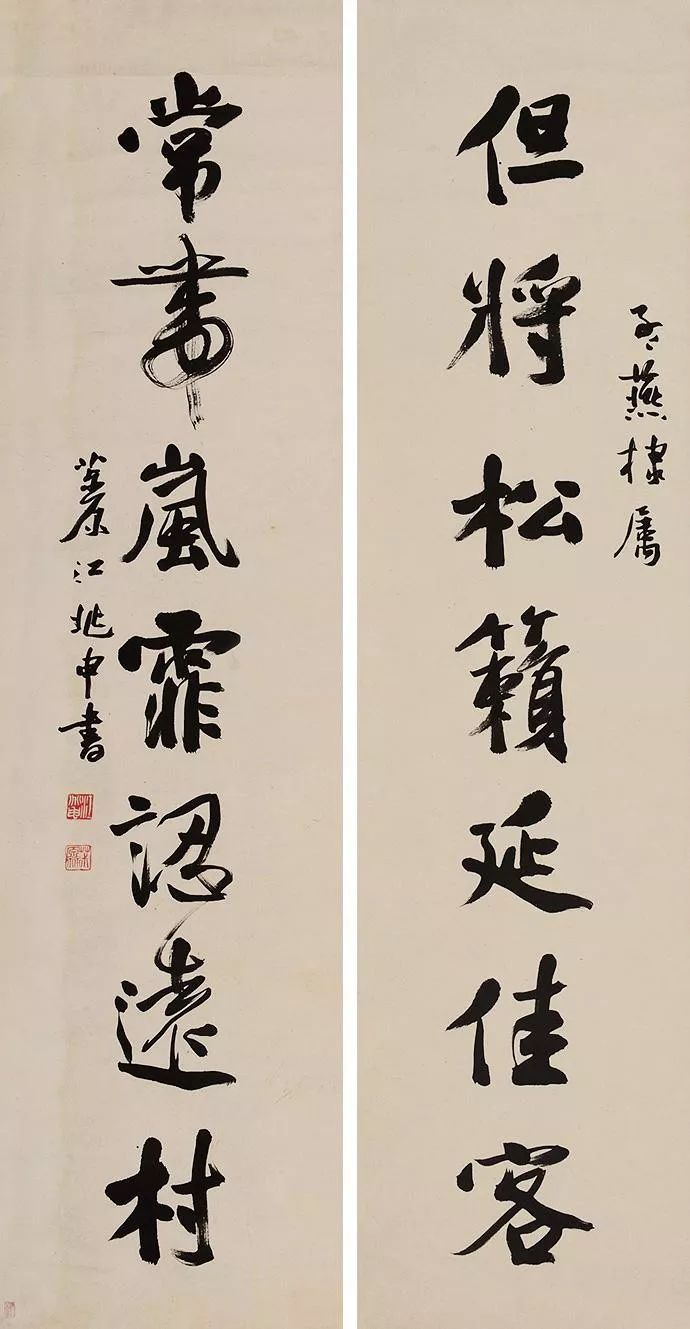 燕棣屬
但將松籟延佳客
常帶嵐霏認遠村
茮原江兆申書